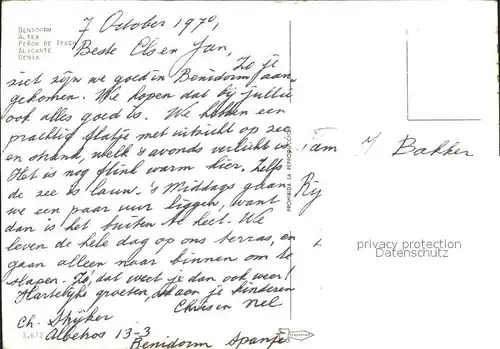 BENIDORM
ALTEA
PEÑON DE IFACH
ALICANTE
DENIA
7 October 1970,
Beste Els en Jan,
Zo je
ziet zijn we goed in Benidorm aan-
gekomen. We hopen dat bij jullie
ook alles goed is. We hebben een
prachtig flatje met uitzicht op zee
en strand, welk 's avonds verlicht is
Het is nog flink warm hier. Zelfs
de zee is lauw. 's Middags gaan
we een paar uur liggen, want
dan is het buiten te heet. We
leven de hele dag op ons terras, en
gaan alleen naar binnen om te
slapen. Zo, dat weet je dan ook weer!
Hartelijke groeten, ook aan je kinderen
Chris en Nel
Ch. Strijker
Albetros 13-3
Benidorm Spanje
3.672
PROHIBIDA LA REPRODUCCION
Fam J Bakker
privacy protection
Datenschutz